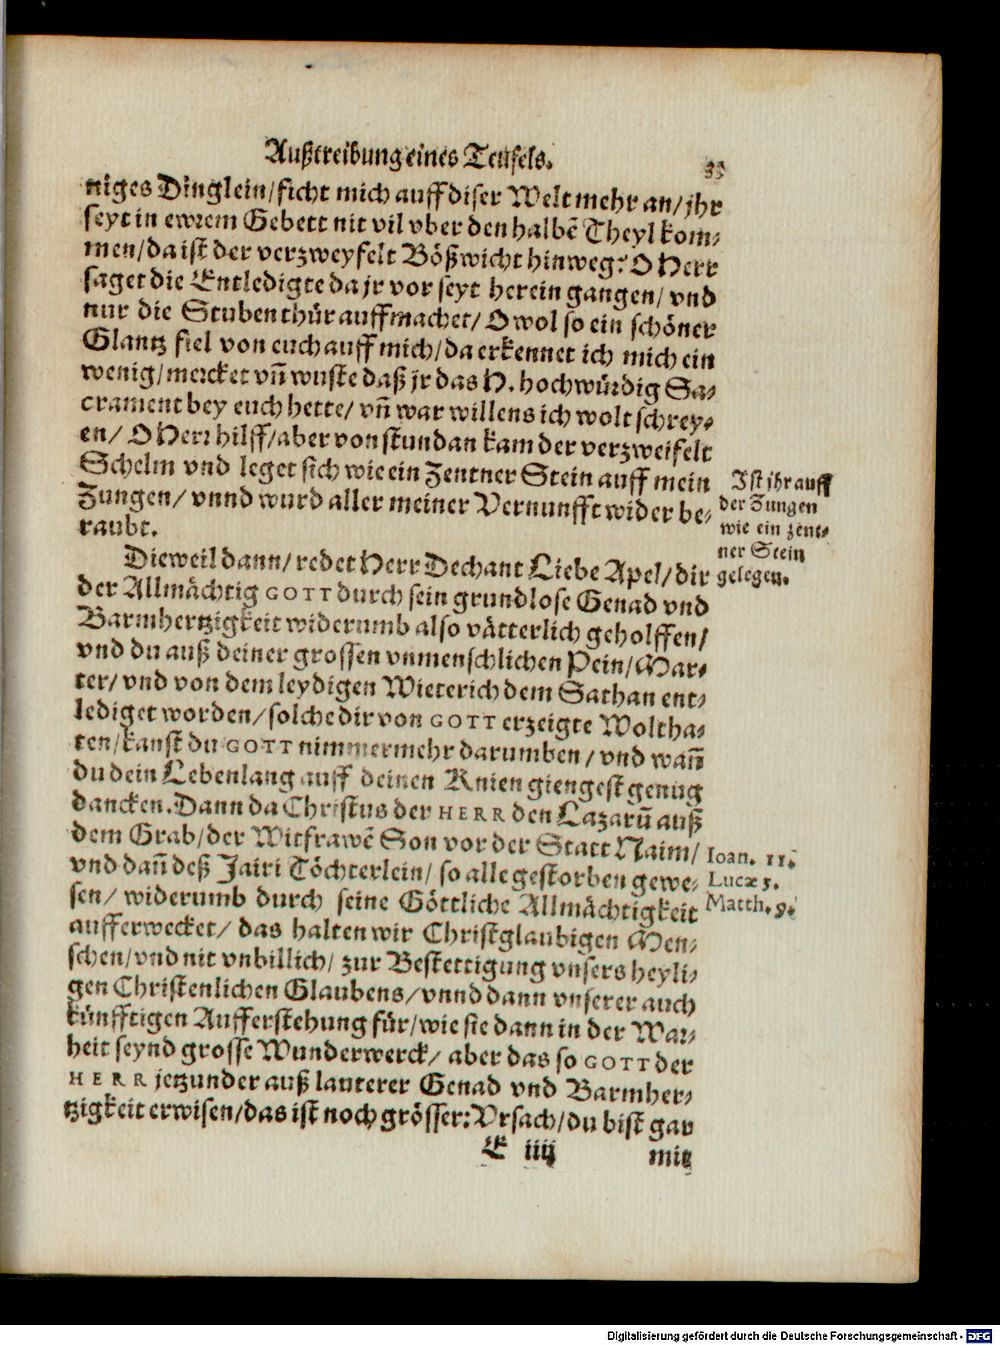 Außtreibung eines Teüfels.
33
niges Dinglein/ ficht mich auff diser Welt mehr an/ jhr
seyt in ewrem Gebett nit vil vber den halbẽ Theyl kom-
men/ da ist der verzweyfelt Bößwicht hinweg: O Herr
saget die Entledigte da jr vor seyt herein gangen/ vnd
nur die Stubenthür auffmachet/ O wol so ein schöner
Glantz fiel von euch auff mich/ da erkennet ich mich ein
wenig/ mercket vñ wuste daß jr das H. hochwürdig Sa-
crament bey euch hette/ vñ war willens ich wolt schrey-
en/ O Herr hilff/ aber von stundan kam der verzweifelt
Schelm vnd leget sich wie ein Zentner Stein auff mein
Zungen/ vnnd wurd aller meiner Vernunfft wider be-
raubt.
Ist jhr auff
der Zungen
wie ein zent-
ner Stein
gelegen.
Dieweil dann/ redet Herr Dechant Liebe Apel/ dir
der Allmächtig GOTT durch sein grundlose Genad vnd
Barmhertzigkeit widerumb also vätterlich geholffen/
vnd du auß deiner grossen vnmenschlichen Pein/ Mar-
ter/ vnd von dem leydigen Wieterich dem Sathan ent-
lediget worden/ solche dir von GOTT erzeigte Woltha-
ten/ kanst du GOTT nimmermehr darumben/ vnd wañ
du dein Lebenlang auff deinen Knien giengest genug
dancken. Dann da Christus der HERR den Lazarũ auß
dem Grab/ der Witfrawẽ Son vor der Statt Naim/
vnd dañ deß Jairi Töchterlein/ so alle gestorben gewe-
sen/ widerumb durch seine Göttliche Allmächtigkeit
aufferwecket/ das halten wir Christglaubigen Men-
schen/ vnd nit vnbillich/ zur Bestettigung vnsers heyli-
gen Christenlichen Glaubens/ vnnd dann vnserer auch
künfftigen Aufferstehung für/ wie sie dann in der War-
heit seynd grosse Wunderwerck/ aber das so GOTT der
HERR jetzunder auß lauterer Genad vnd Barmher-
tzigkeit erwisen/ das ist noch grösser: Vrsach/ du bist gar
Ioan. 11.
Lucæ 7.
Matth. 9.
E iiij
mit
Digitalisierung gefördert durch die Deutsche Forschungsgemeinschaft - DFG